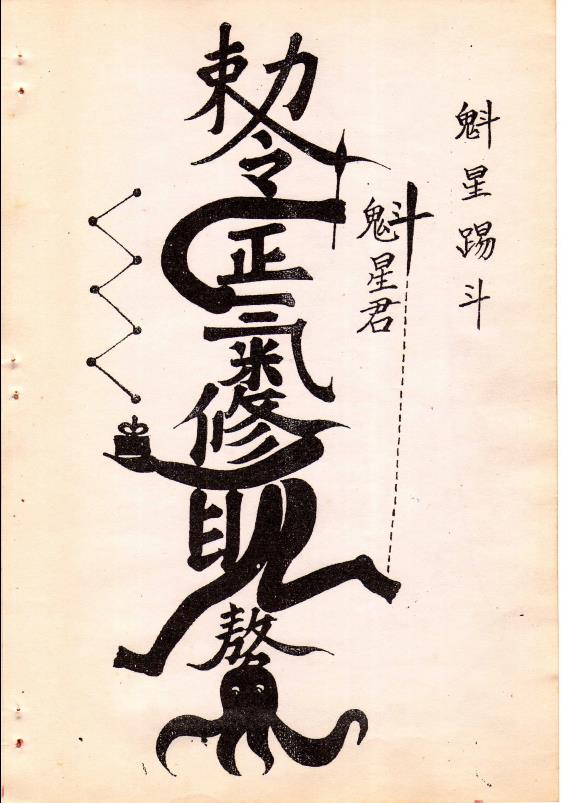 魁星踢斗
魁星君
勅令正氣修敖